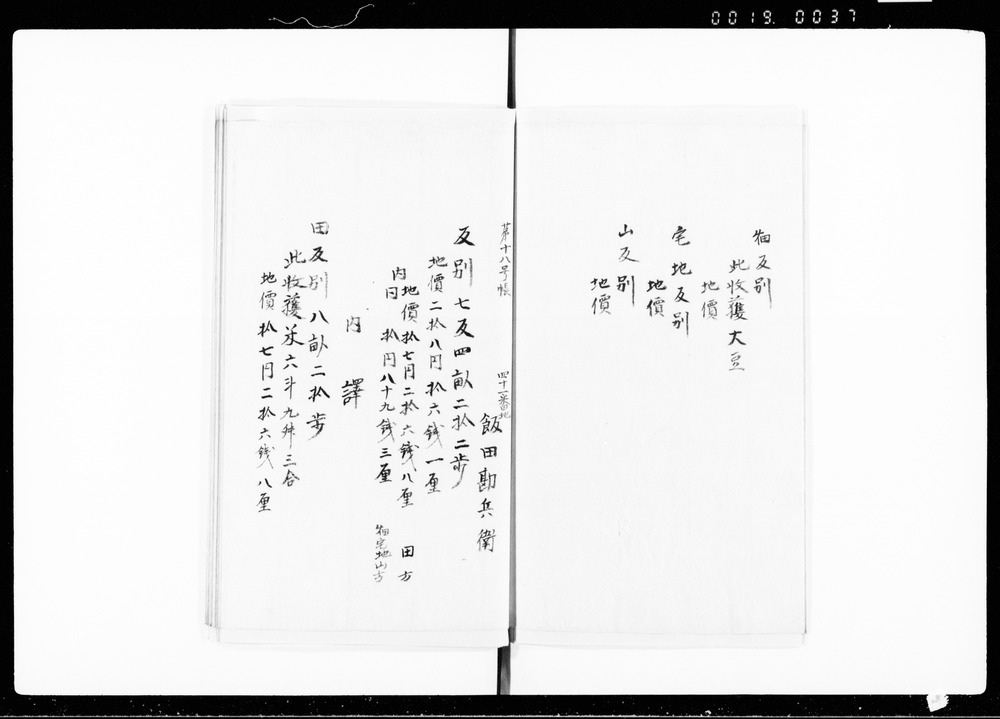 0019. 0037
畑反別
此收獲大豆
地價
宅地反別
地價
山反別
地價
第十八号帳
四十一番地
飯田勘兵衛
反別七反四畝二拾二歩
地價二拾八円拾六銭一厘
内地價拾七円二拾六銭八厘 田方
内円拾円八十九銭三厘 畑宅地山方
内譯
田反別八畝二拾歩
此收獲米六斗九舛三合
地價拾七円二拾六銭八厘